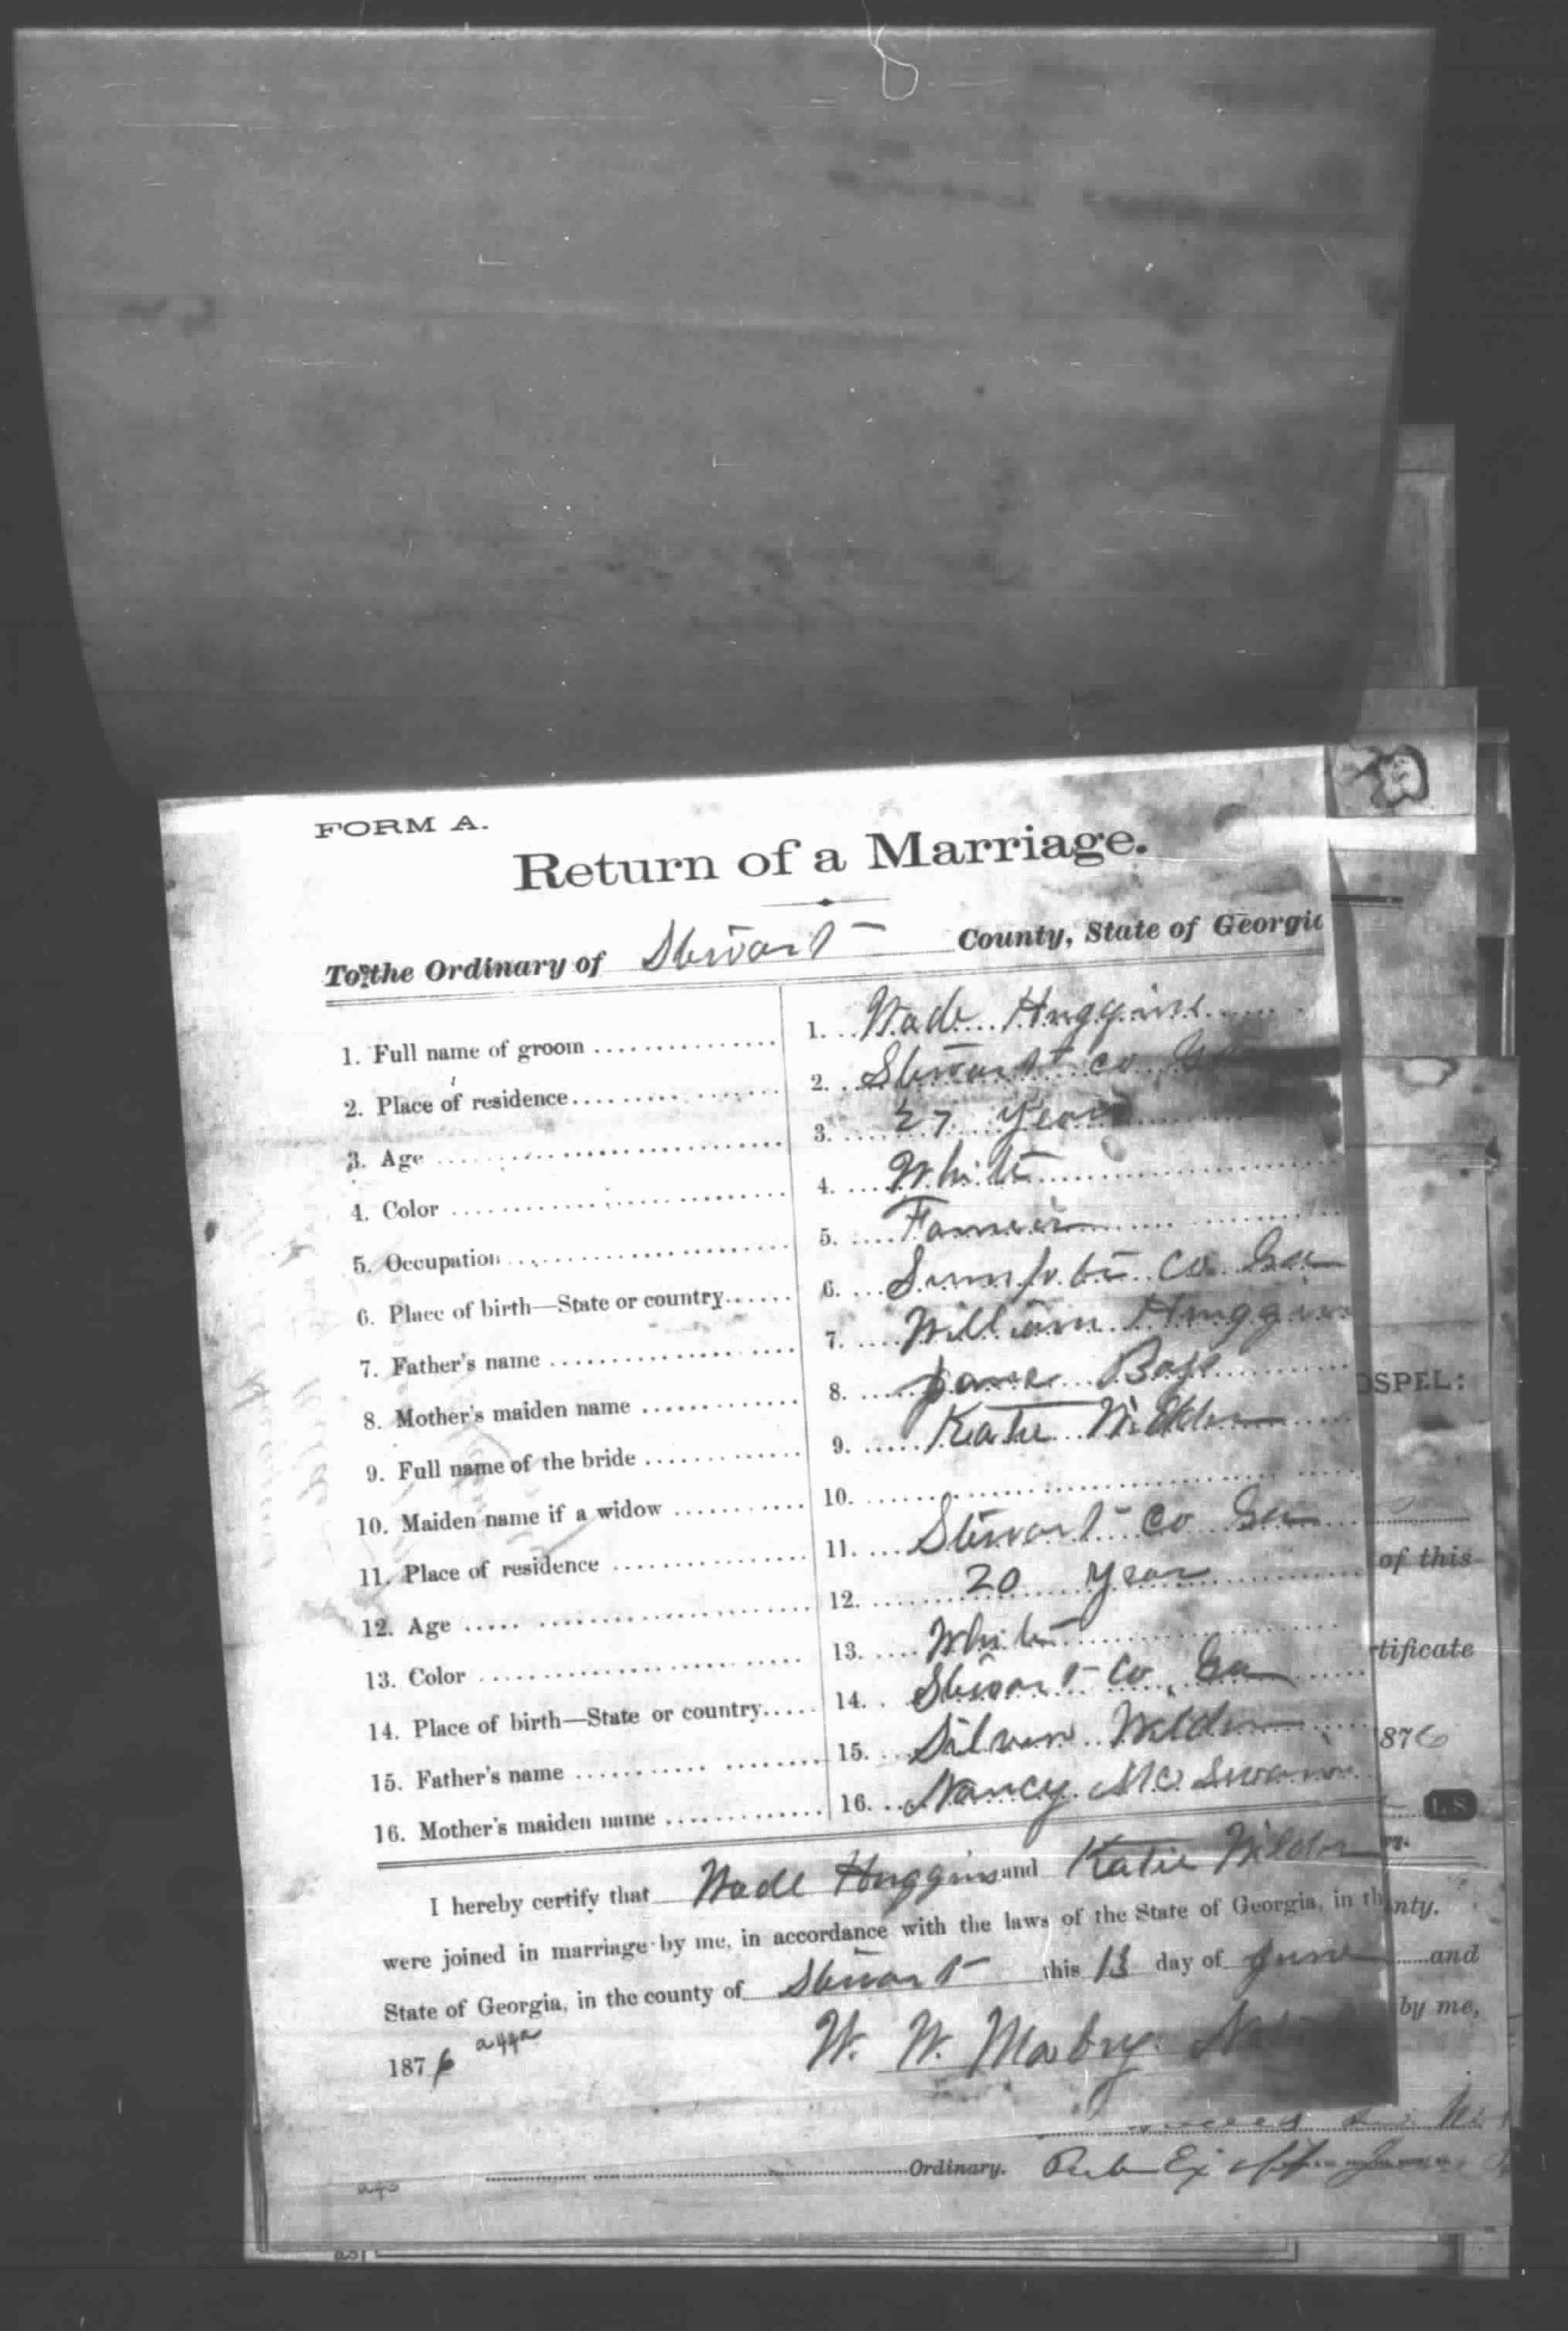 8
FORM A.
Return of a Marriage.
To the Ordinary of Stewart County, State of Georgia
1. Full name of groom 1. Wade Huggins
2. Place of residence 2. Stewart Co Ga
3. Age 3. 27 Years
4. Color 4. White
5. Occupation 5. Farmer
6. Place of birth—State or country 6. Sumpter Co. Ga
7. Father's name 7. William Huggins
8. Mother's maiden name 8. Jane
9. Full name of the bride 9. Katie Wilder
10. Maiden name if a widow 10.
11. Place of residence 11. Stewart Co Ga
12. Age 12. 20 Year
13. Color 13. White
14. Place of birth—State or country 14. Stewart Co, Ga
15. Father's name 15. Wilder
16. Mother's maiden name 16. Nancy McSwain
I hereby certify that Wade Huggins and Katie Wilder
were joined in marriage by me, in accordance with the laws of the State of Georgia, in th
State of Georgia, in the county of Stewart this 13 day of June
1876
W. W. Mabry
OSPEL:
of this
tificate
876
L. S.
ry.
nty.
and
by me,
Ordinary.